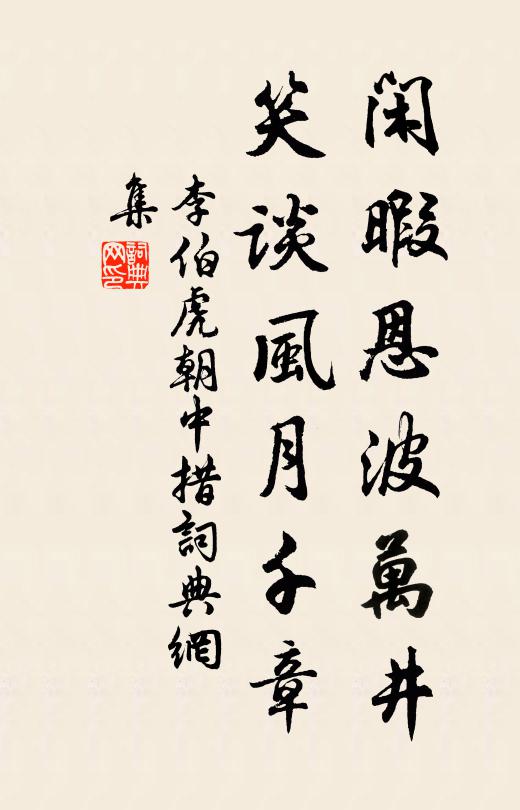 閑暇恩波萬井
笑談風月千章
李伯虎朝中措詞典網
集
詞典
网印